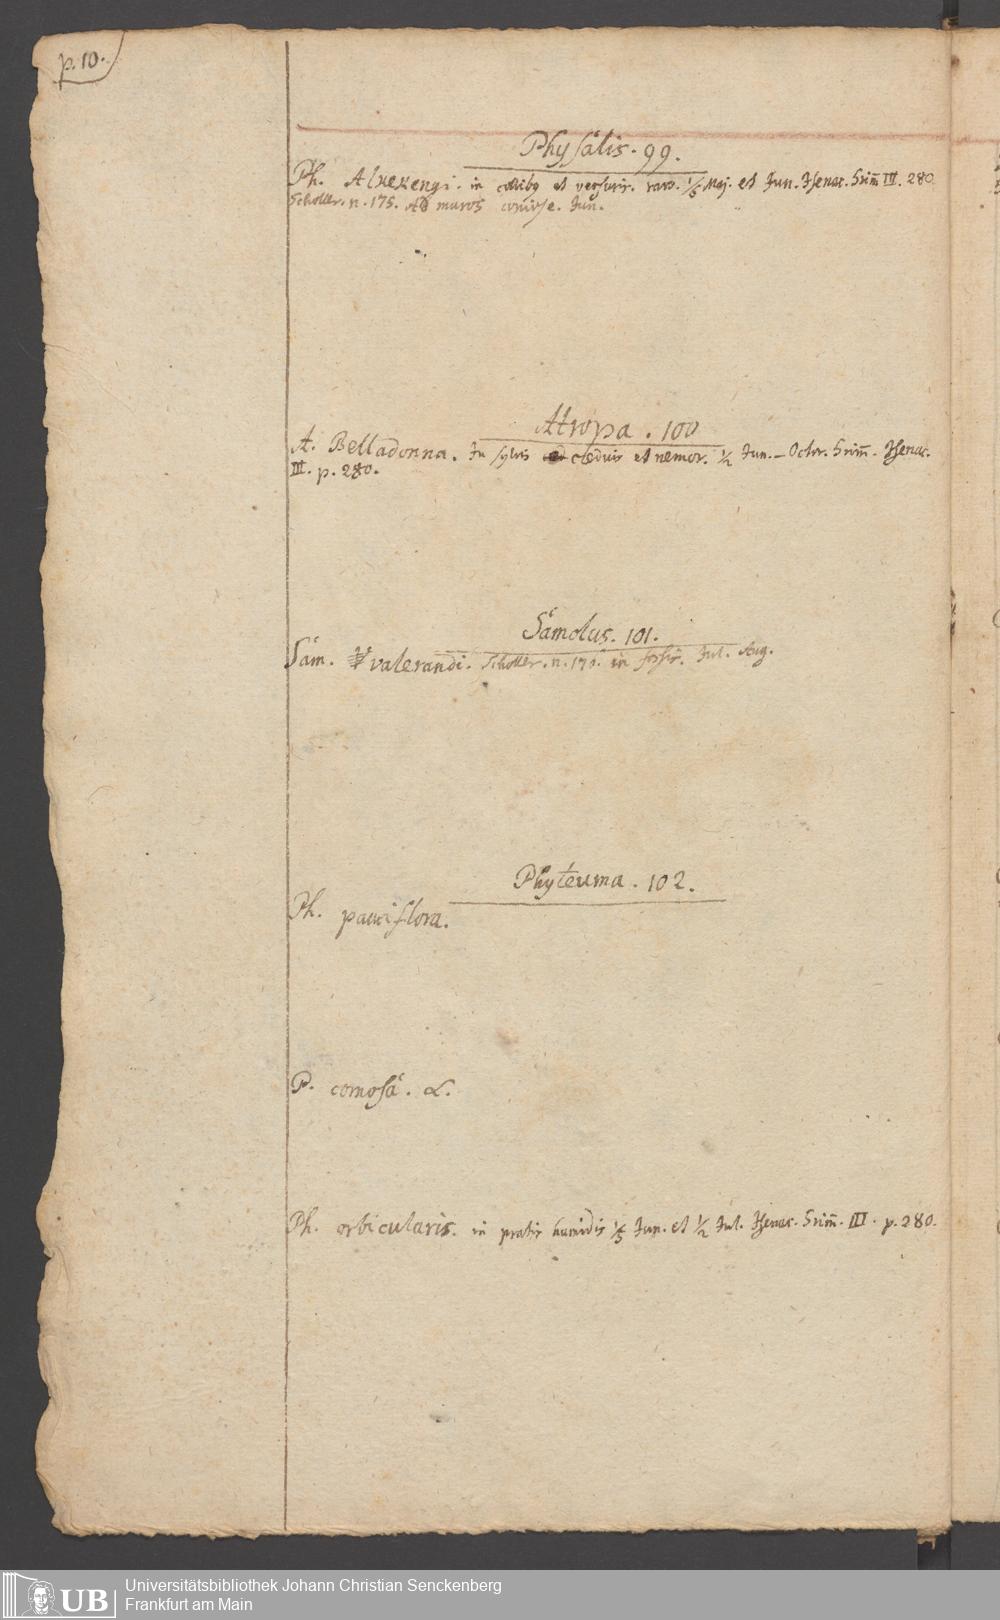 p. 10.
Physalis. 99.
Ph. Alkekengi. in collibg et versuris. raro. 1/5 Maj. et Jun. Isenac. Grim̄ III. 280.
Scholler. n. 175. Ad muros Jun.
Atropa. 100
A. Belladonna. In sylvis cæduis et nemor. 1/2 Jun. – Octbr. Grim̄. Isenac.
III. p. 280.
Samolus. 101.
Sam. valerandi. Scholler. n. 176. in fossis. Jul. Aug.
Phyteuma. 102.
Ph. pauciflora.
P. comosa. α.
Ph. orbicularis. in pratis humidis 1/5 Jun. et 1/2 Jul. Isenac. Grim̄. III. p. 280.
UB
Universitätsbibliothek Johann Christian Senckenberg
Frankfurt am Main